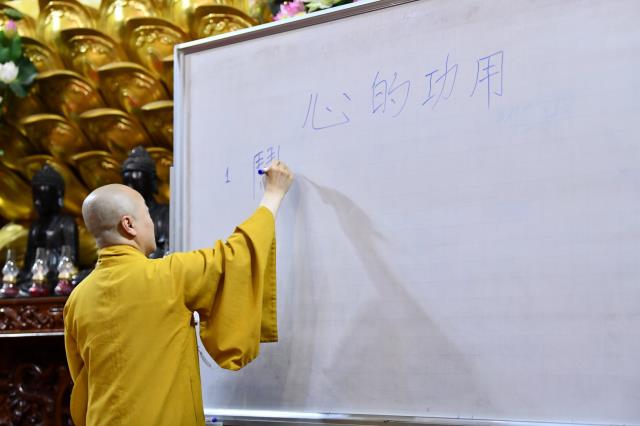 心的功用
1